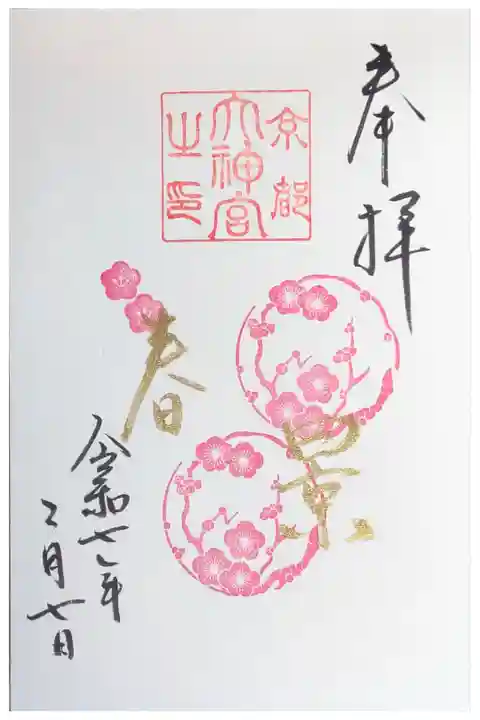 奉拝
京都
大神宮
之印
春
令和七年
二月七日